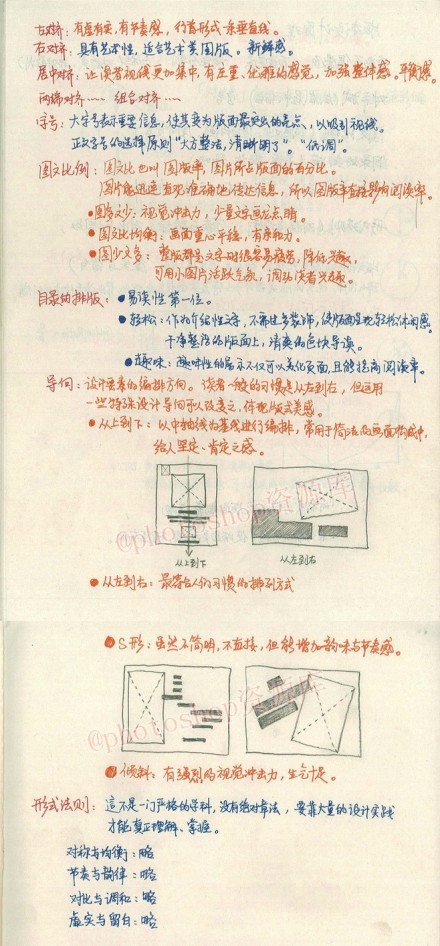 左对齐：有虚有实，有节奏感，行首形成一条垂直线。
右对齐：具有艺术性，适合艺术类图版。新鲜感。
居中对齐：让读者视线更加集中，有庄重、优雅的感觉，加强整体感。平衡感。
两端对齐…… 组合对齐……
字号：大字号表示重要信息，使其变为版面最突出的亮点，以吸引视线。
正文字号的选择原则"大方整洁，清晰明了"。"低调"。
图文比例：图文比也叫图版率，图片所占版面的百分比。
图片能迅速直观准确地传达信息，所以图版率直接影响阅读率。
●图多文少：视觉冲击力，少量文字画龙点睛。
●图文比均衡：画面重心平稳，有亲和力。
●图少文多：整版都是文字时很容易疲劳，降低兴趣，
可用小图片活跃气氛，调动读者兴趣。
目录的排版：●易读性第一位。
●轻松：作为介绍性文字，不需过多装饰，使版面呈现轻松休闲感。
干净整洁的版面上，清爽的色块导读。
●趣味：趣味性的展示不仅可以美化页面，且能提高阅读率。
导向：设计要素的编排方向。读者一般的习惯是从左到右，但运用
一些特殊设计导向可以改变之，体现版式美感。
●从上到下：以中轴线为基线进行编排，常用于简洁的画面构成中，
给人坚定、肯定之感。
@photoshop资源库
从上到下 从左到右
●从左到右：最符合人们习惯的排列方式
●S形：虽然不简明，不直接，但能增加韵味与节奏感。
@photoshop资源库
●倾斜：有强烈的视觉冲击力，生气十足。
形式法则：這不是一门严格的学科，没有绝对算法，要靠大量的设计实践
才能真正理解、掌握。
对称与均衡：略
节奏与韵律：略
对比与调和：略
虚实与留白：略